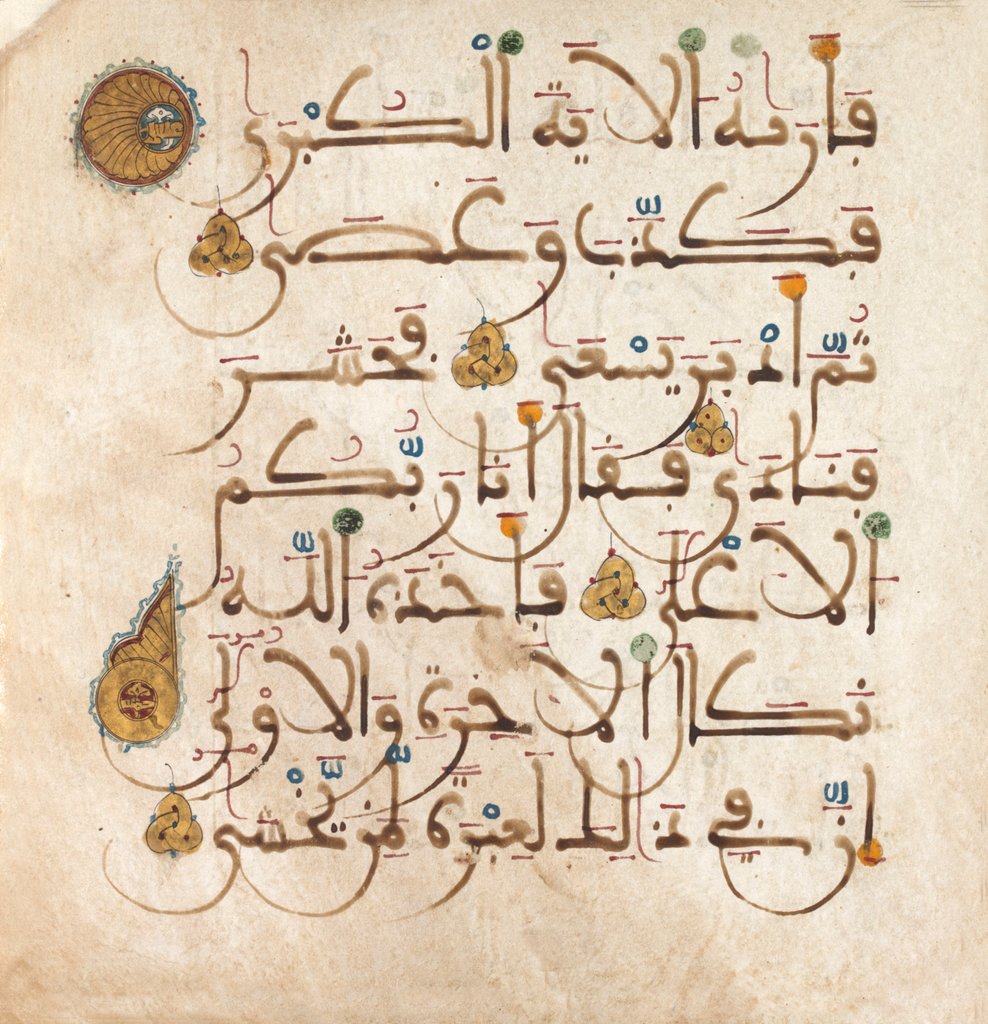 فَأَرَىٰهُ الْأَيَةَ الْكُبْرَىٰ
فَكَذَّبَ وَعَصَىٰ
ثُمَّ أَدْبَرَ يَسْعَىٰ فَحَشَرَ
فَنَادَىٰ فَقَالَ أَنَا رَبُّكُمُ
الْأَعْلَىٰ فَأَخَذَهُ اللَّهُ
نَكَالَ الْأَخِرَةِ وَالْأُولَىٰ
إِنَّ فِي ذَٰلِكَ لَعِبْرَةً لِّمَنْ يَّخْشَىٰ